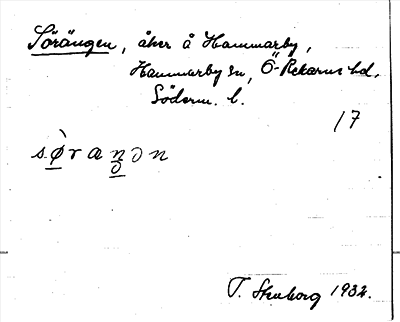 Sörängen, åker å Hammarby,
Hammarby sn, Ö-Rekarne hd,
Söderm. l.
17
sø̀raŋən
T. Stenborg 1932.